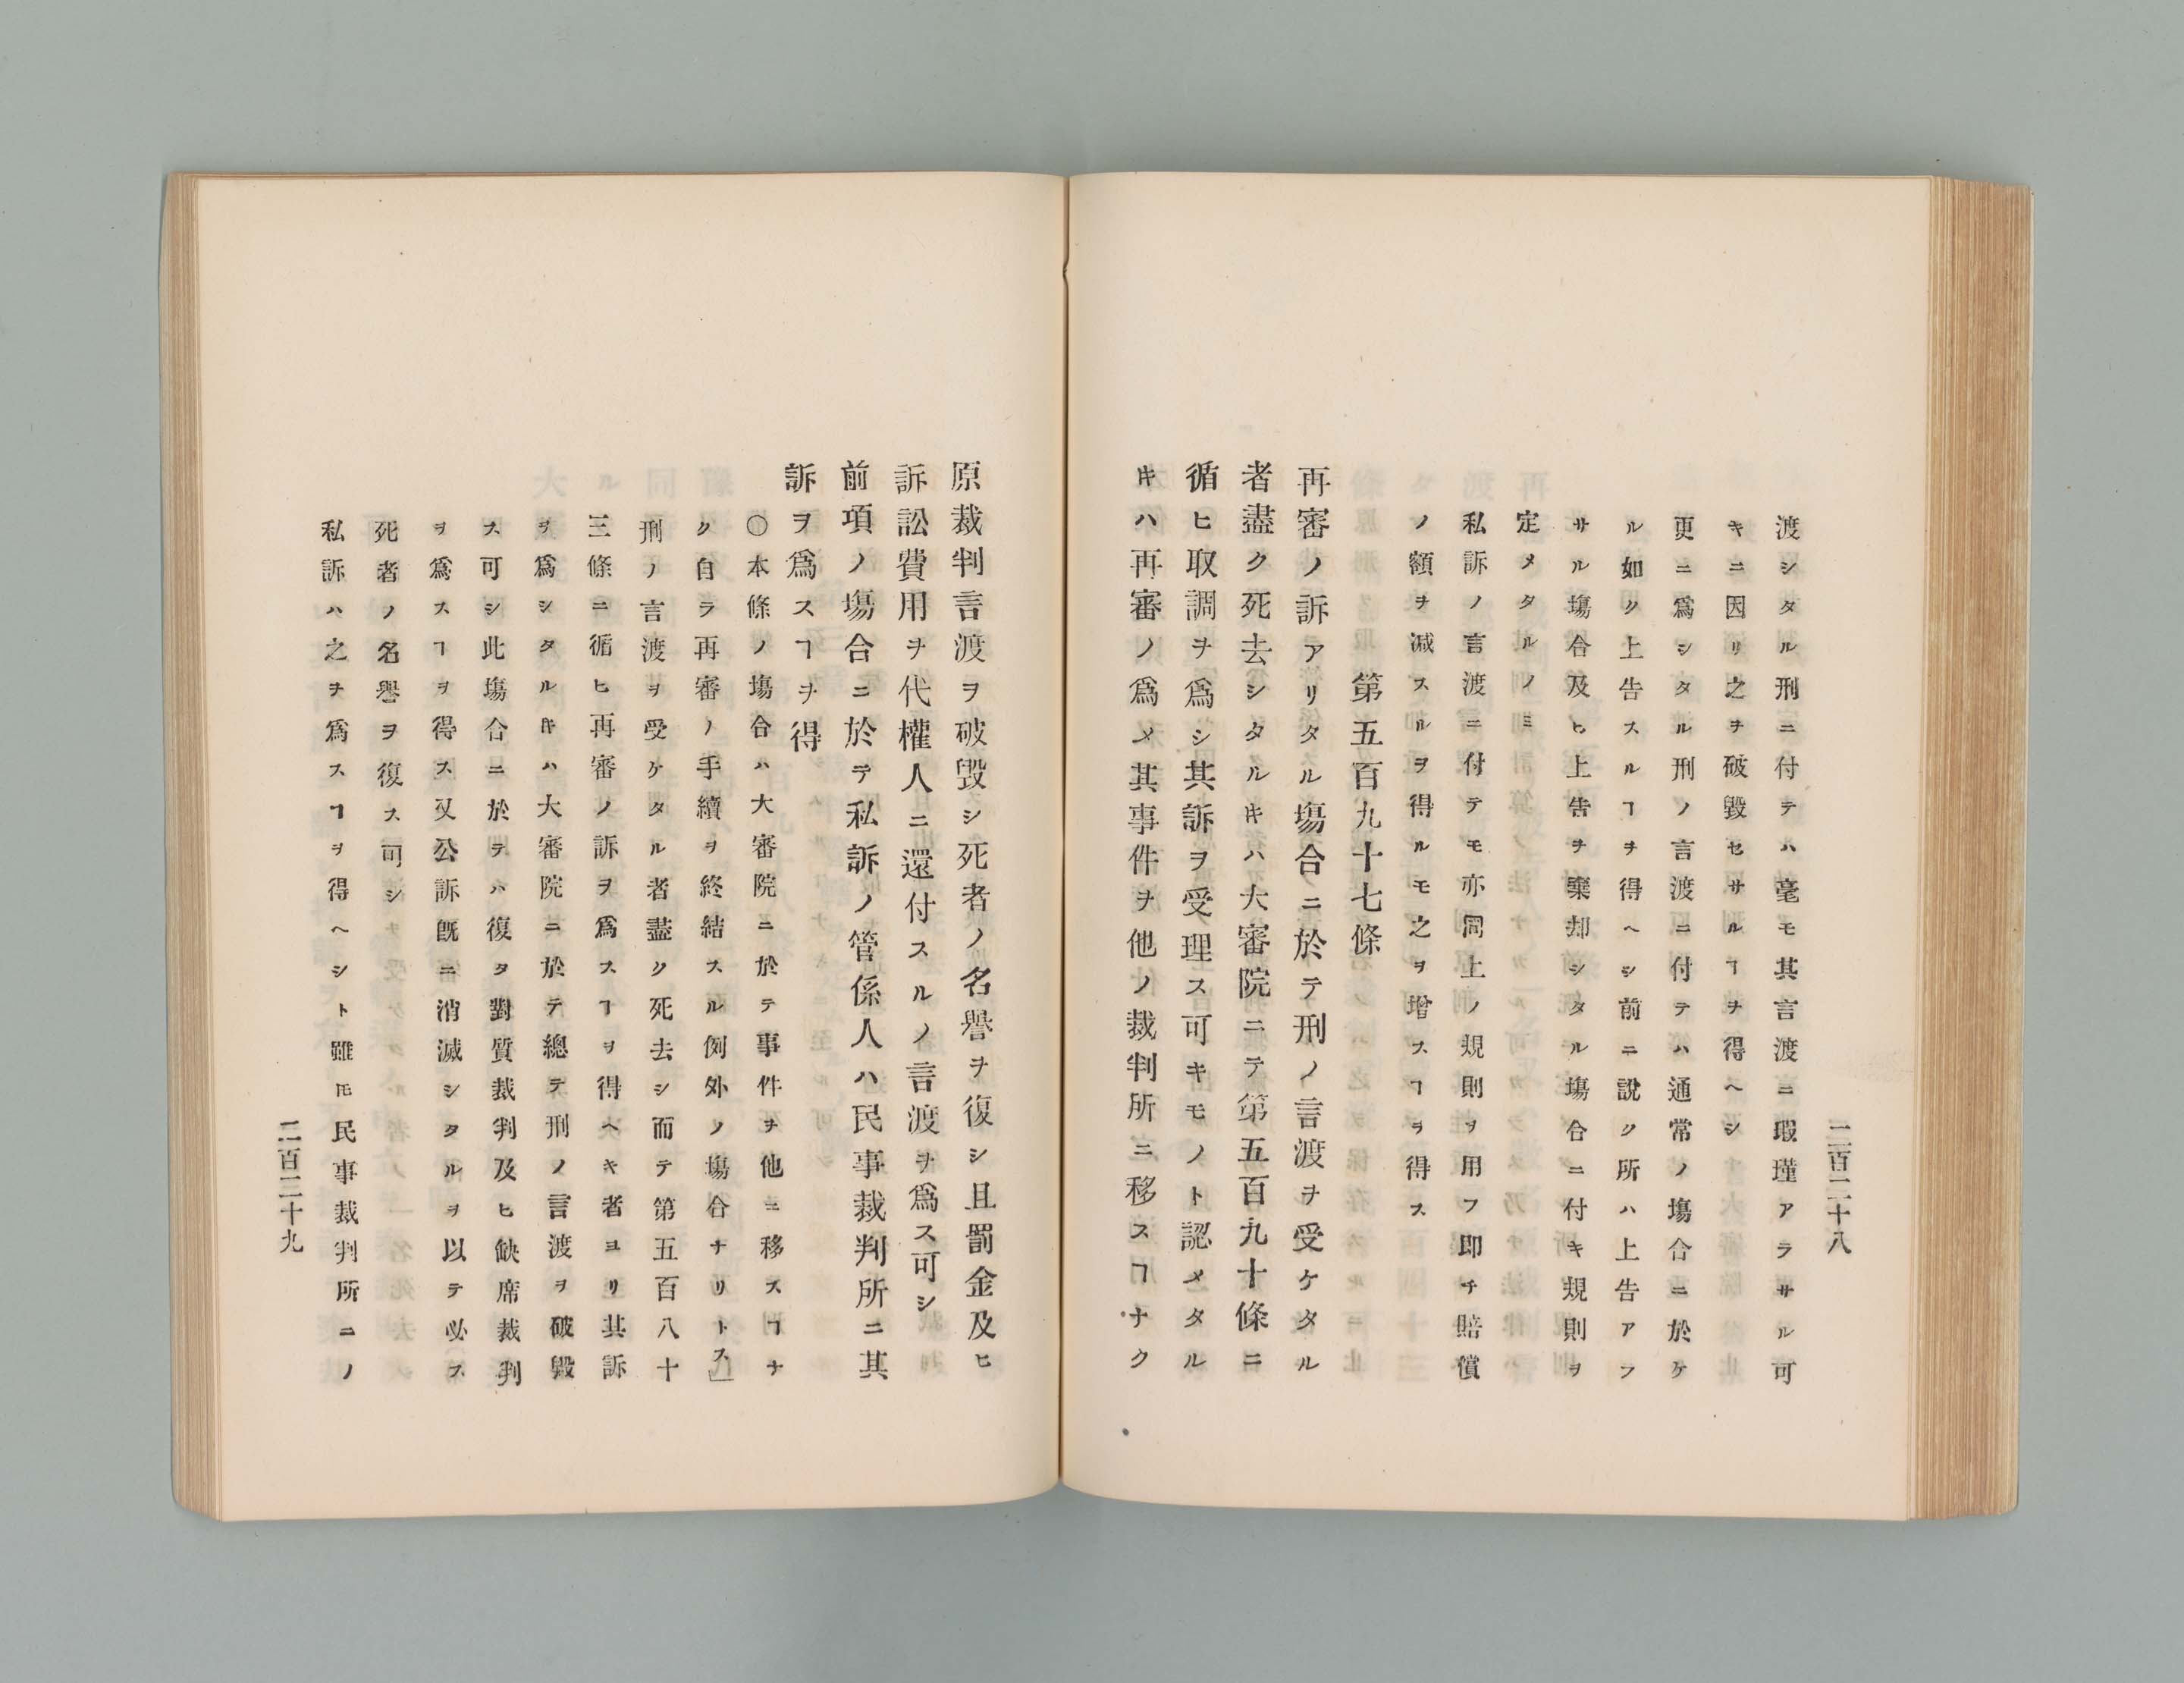 二百二十八
渡シタル刑ニ付テハ毫モ其言渡ニ瑕瑾アラサル可
キニ因リ之ヲ破毀セサルヿヲ得ヘシ
更ニ爲シタル刑ノ言渡ニ付テハ通常ノ塲合ニ於ケ
ル如ク上告スルヿヲ得ヘシ前ニ說ク所ハ上告アラ
サル塲合及ヒ上告ヲ棄却シタル塲合ニ付キ規則ヲ
定メタルノミ
私訴ノ言渡ニ付テモ亦同上ノ規則ヲ用フ即チ賠償
ノ額ヲ减スルヲ得ルモ之ヲ增スヿヲ得ス
第五百九十七條
再審ノ訴アリタル塲合ニ於テ刑ノ言渡ヲ受ケタル
者盡ク死去シタルキハ大審院ニテ第五百九十條ニ
循ヒ取調ヲ爲シ其訴ヲ受理ス可キモノト認メタル
キハ再審ノ爲メ其事件ヲ他ノ裁判所ニ移スヿナク
原裁判言渡ヲ破毀シ死者ノ名譽ヲ復シ且罰金及ヒ
訴訟費用ヲ代權人ニ還付スルノ言渡ヲ爲ス可シ
前項ノ塲合ニ於テ私訴ノ管係人ハ民事裁判所ニ其
訴ヲ爲スヿヲ得
〇本條ノ塲合ハ大審院ニ於テ事件ヲ他ニ移スヿナ
ク自ラ再審ノ手續ヲ終結スル例外ノ塲合ナリトス」
刑ノ言渡ヲ受ケタル者盡ク死去シ而テ第五百八十
三條ニ循ヒ再審ノ訴ヲ爲スヿヲ得ヘキ者ヨリ其訴
ヲ爲シタルキハ大審院ニ於テ總テ刑ノ言渡ヲ破毀
ス可シ此塲合ニ於テハ復タ對質裁判及ヒ缺席裁判
ヲ爲スヿヲ得ス又公訴旣ニ消滅シタルヲ以テ必ス
死者ノ名譽ヲ復ス可シ
私訴ハ之ヲ爲スヿヲ得ヘシト雖𪜈民事裁判所ニノ
二百二十九